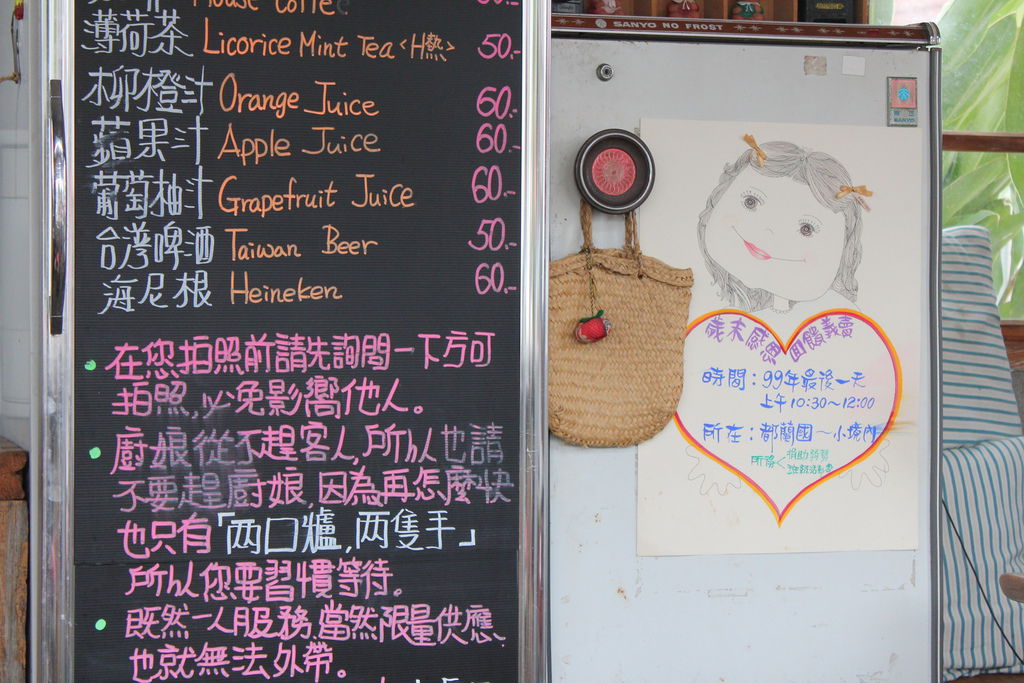 House Coffee 50.-
薄荷茶 Licorice Mint Tea <H熱> 50.-
柳橙汁 Orange Juice 60.-
蘋果汁 Apple Juice 60.-
葡萄柚汁 Grapefruit Juice 60.-
台灣啤酒 Taiwan Beer 50.-
海尼根 Heineken 60.-
在您拍照前請先詢問一下方可
拍照,以免影響他人。
廚娘從不趕客人,所以也請
不要趕廚娘,因為再怎麼快
也只有「两口爐,两隻手」
所以您要習慣等待。
既然一人服務,當然限量供應、
也就無法外帶。
SANYO NO FROST
SANYO
歲末感恩 回饋義賣
時間:99年最後一天
上午10:30~12:00
所在:都蘭國~小境內
所得<